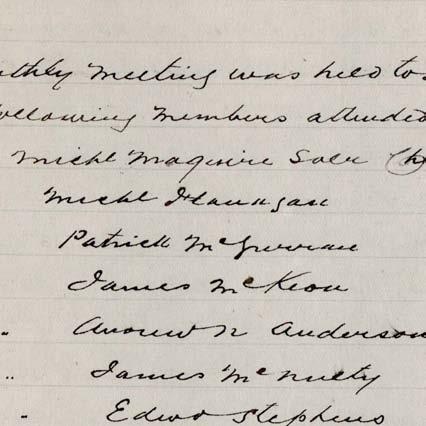 nthly Meeting was held to
ollowing Members attended
Michl Maguire Solr Ch
Michl Flanagan
Patrick McGurran
James McKeon
" Andrew N Anderson
" James McNulty
" Edwd Stephens